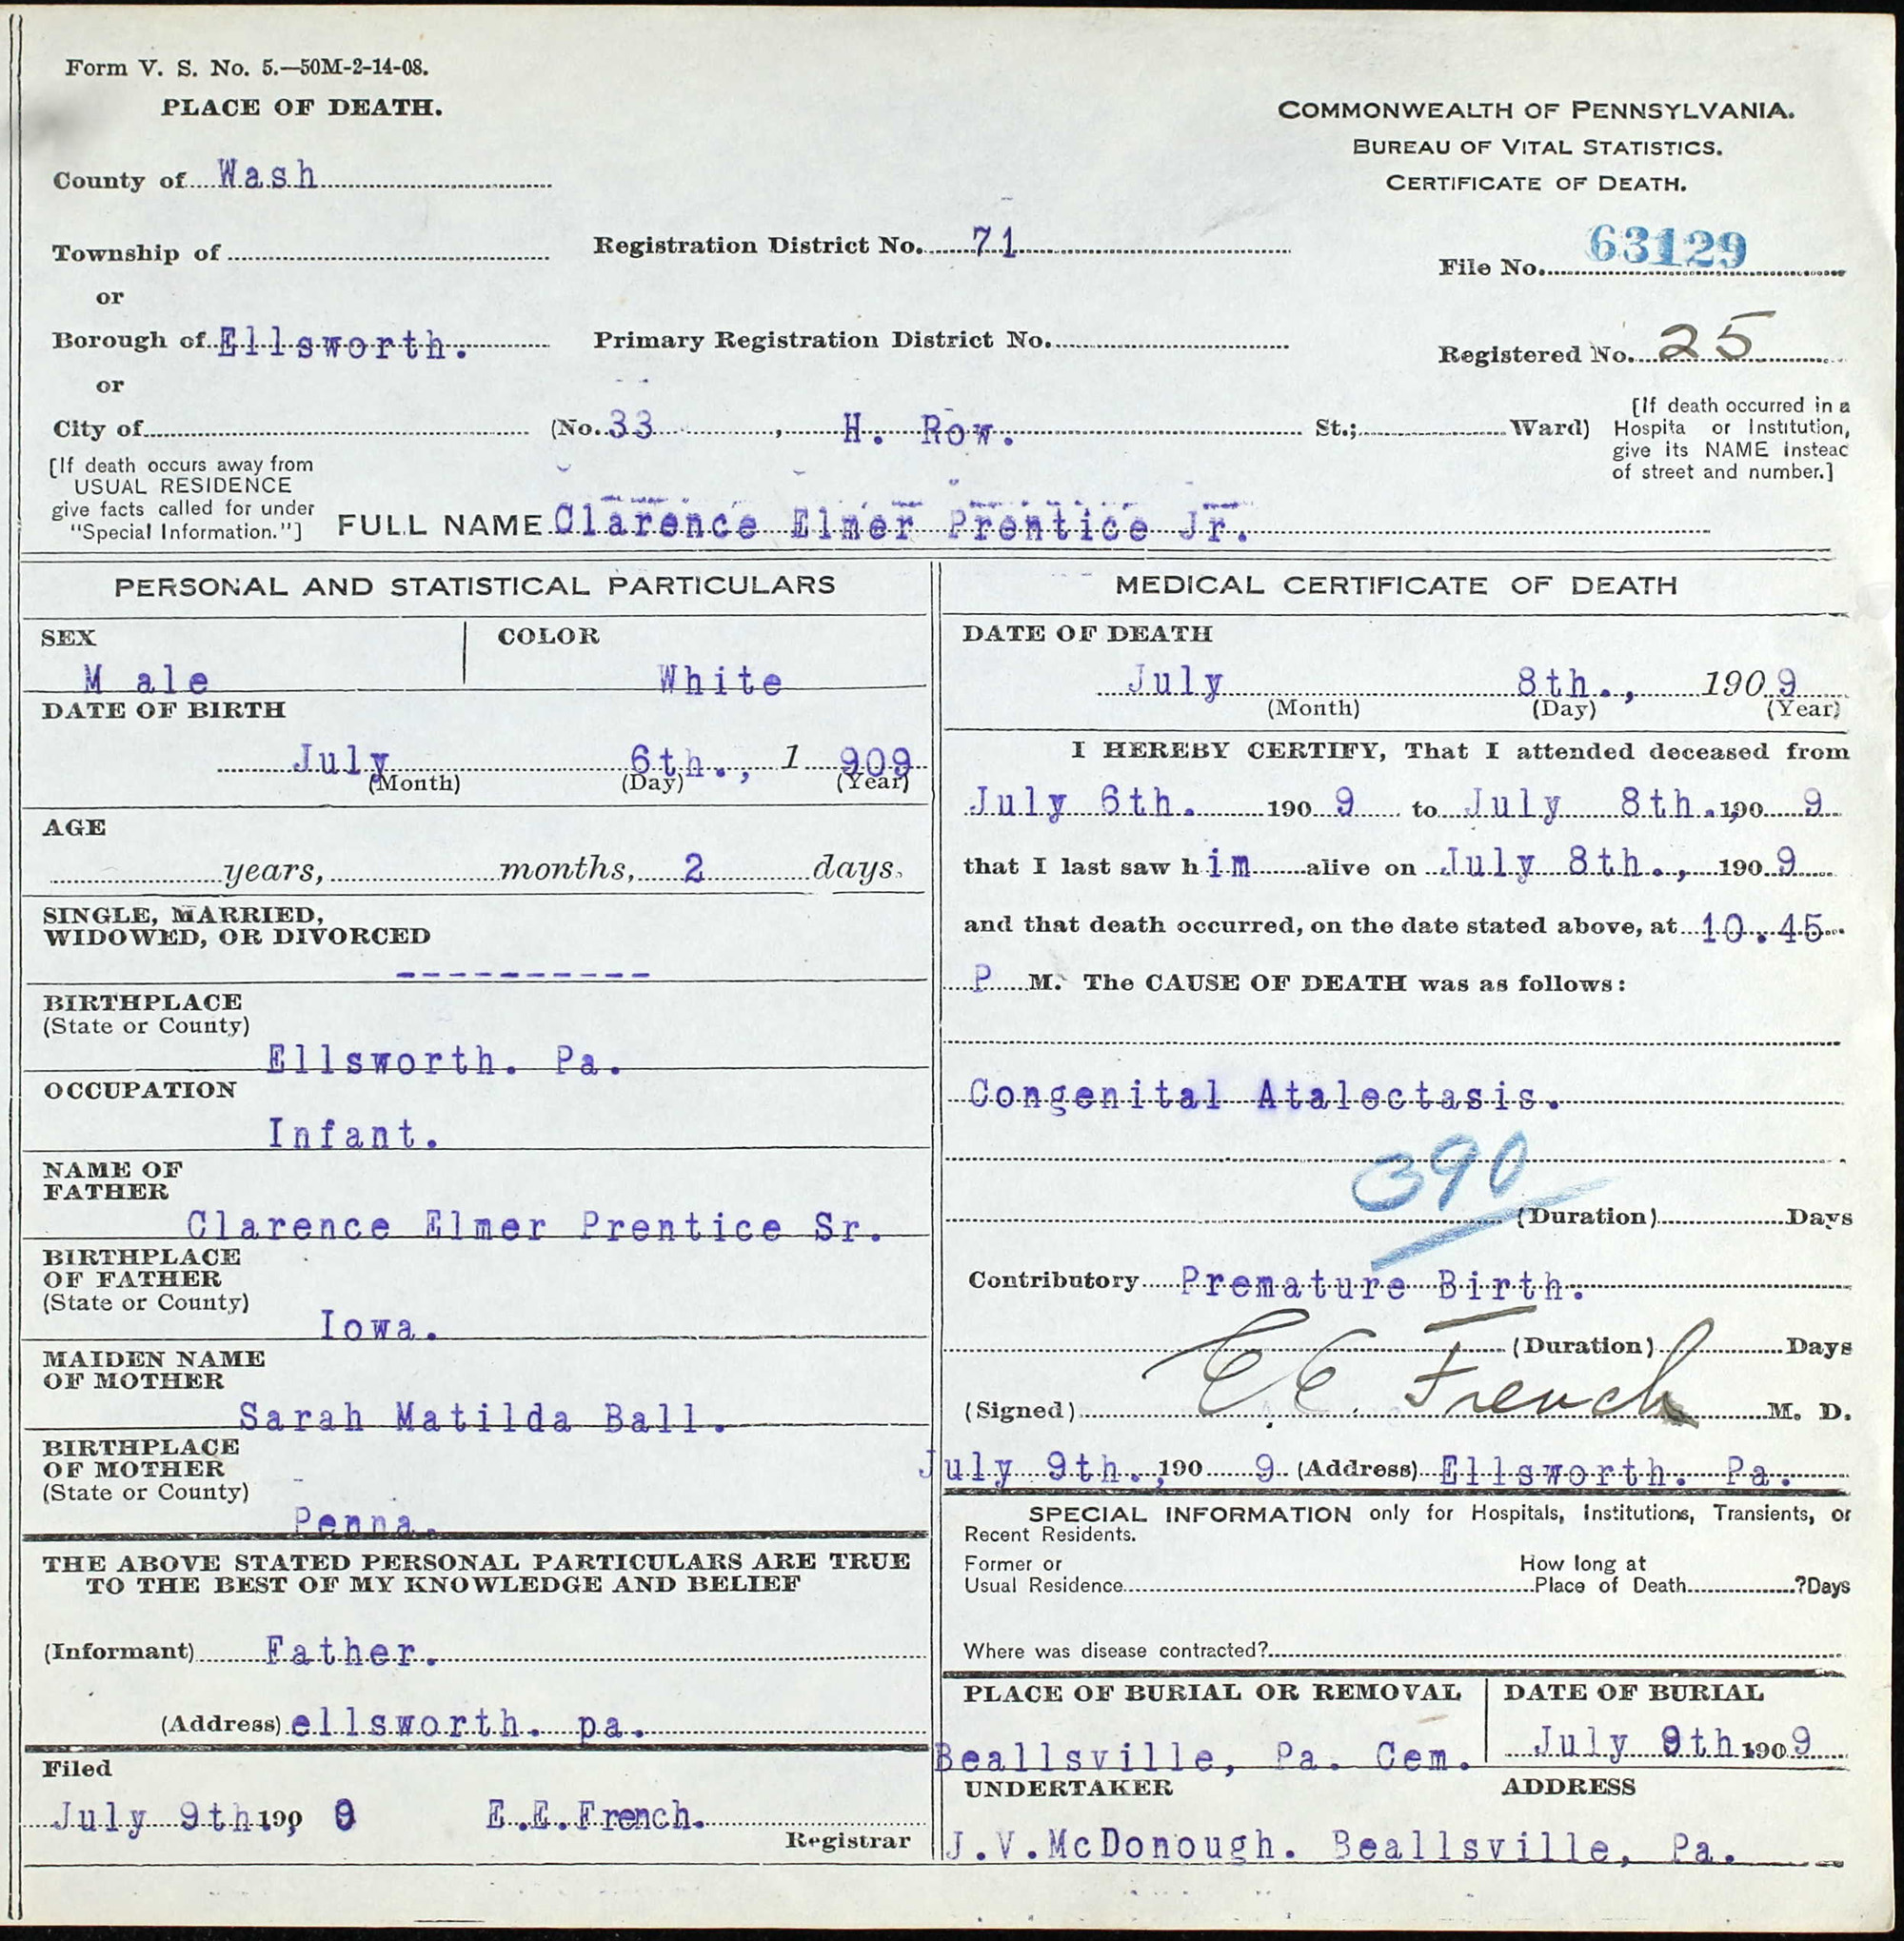 Form V. S. No. 5.—50M-2-14-08.
PLACE OF DEATH.
COMMONWEALTH OF PENNSYLVANIA.
BUREAU OF VITAL STATISTICS.
CERTIFICATE OF DEATH.
County of Wash
Township of
Registration District No. 71
File No. 63129
or
Borough of Ellsworth.
Primary Registration District No.
Registered No. 25
or
City of (No. 33, H. Row. St.; Ward)
[If death occurred in a
Hospita or Institution,
give its NAME insteac
of street and number.]
[If death occurs away from
USUAL RESIDENCE
give facts called for under
"Special Information."]
FULL NAME Clarence Elmer Prentice Jr.
PERSONAL AND STATISTICAL PARTICULARS
SEX
M ale
COLOR
White
DATE OF BIRTH
July 6th., 1 909
(Month) (Day) (Year)
AGE
years, months, 2 days.
SINGLE, MARRIED,
WIDOWED, OR DIVORCED
----------
BIRTHPLACE
(State or County)
Ellsworth. Pa.
OCCUPATION
Infant.
NAME OF
FATHER
Clarence Elmer Prentice Sr.
BIRTHPLACE
OF FATHER
(State or County)
Iowa.
MAIDEN NAME
OF MOTHER
Sarah Matilda Ball.
BIRTHPLACE
OF MOTHER
(State or County)
Penna.
THE ABOVE STATED PERSONAL PARTICULARS ARE TRUE
TO THE BEST OF MY KNOWLEDGE AND BELIEF
(Informant) Father.
(Address) ellsworth. pa.
Filed
July 9th, 190 9 E.E.French.
Registrar
MEDICAL CERTIFICATE OF DEATH
DATE OF DEATH
July 8th., 190 9
(Month) (Day) (Year)
I HEREBY CERTIFY, That I attended deceased from
July 6th. 190 9 to July 8th., 190 9
that I last saw h im alive on July 8th., 190 9
and that death occurred, on the date stated above, at 10.45
P M. The CAUSE OF DEATH was as follows:
Congenital Atalectasis.
390
(Duration) Days
Contributory Premature Birth.
(Duration) Days
(Signed) E E. French M. D.
July 9th., 190 9 (Address) Ellsworth. Pa.
SPECIAL INFORMATION only for Hospitals, Institutions, Transients, or
Recent Residents.
Former or
Usual Residence
How long at
Place of Death ?Days
Where was disease contracted?
PLACE OF BURIAL OR REMOVAL
Beallsville, Pa. Cem.
DATE OF BURIAL
July 9th 190 9
UNDERTAKER
ADDRESS
J.V.McDonough. Beallsville, Pa.